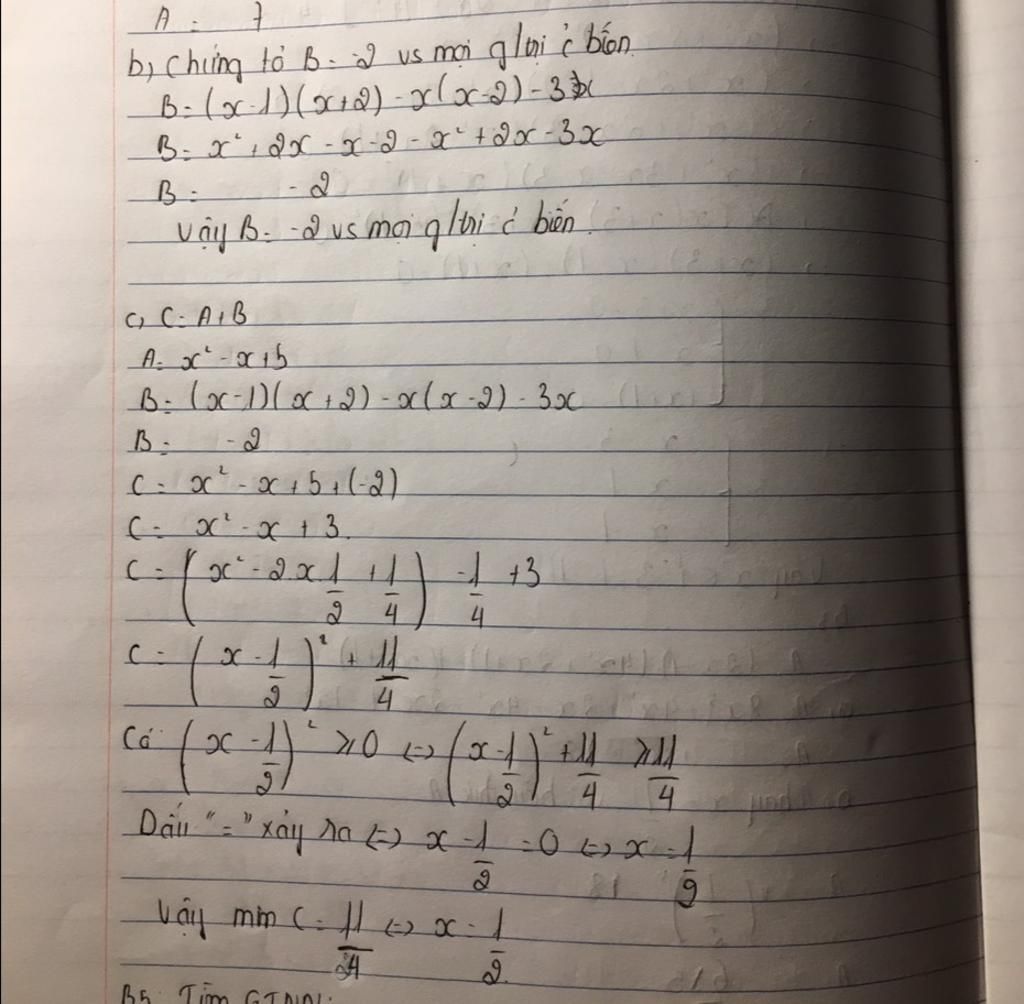 A = 7
b, Chứng tỏ B = -2 vs mọi g/trị c̉ biến.
B = (x-1)(x+2) - x(x-2) - 3x
B = x² + 2x - x - 2 - x² + 2x - 3x
B = -2
Vậy B = -2 vs mọi g/trị c̉ biến.
c, C = A + B
A = x² - x + 5
B = (x-1)(x+2) - x(x-2) - 3x
B = -2
C = x² - x + 5 + (-2)
C = x² - x + 3.
C = (x² - 2x 1/2 + 1/4) - 1/4 + 3
C = (x - 1/2)² + 11/4
Có (x - 1/2)² ≥ 0 <=> (x - 1/2)² + 11/4 ≥ 11/4
Dấu "=" xảy ra <=> x - 1/2 = 0 <=> x = 1/2
Vậy min C = 11/4 <=> x = 1/2.
B5: Tìm GTNN: